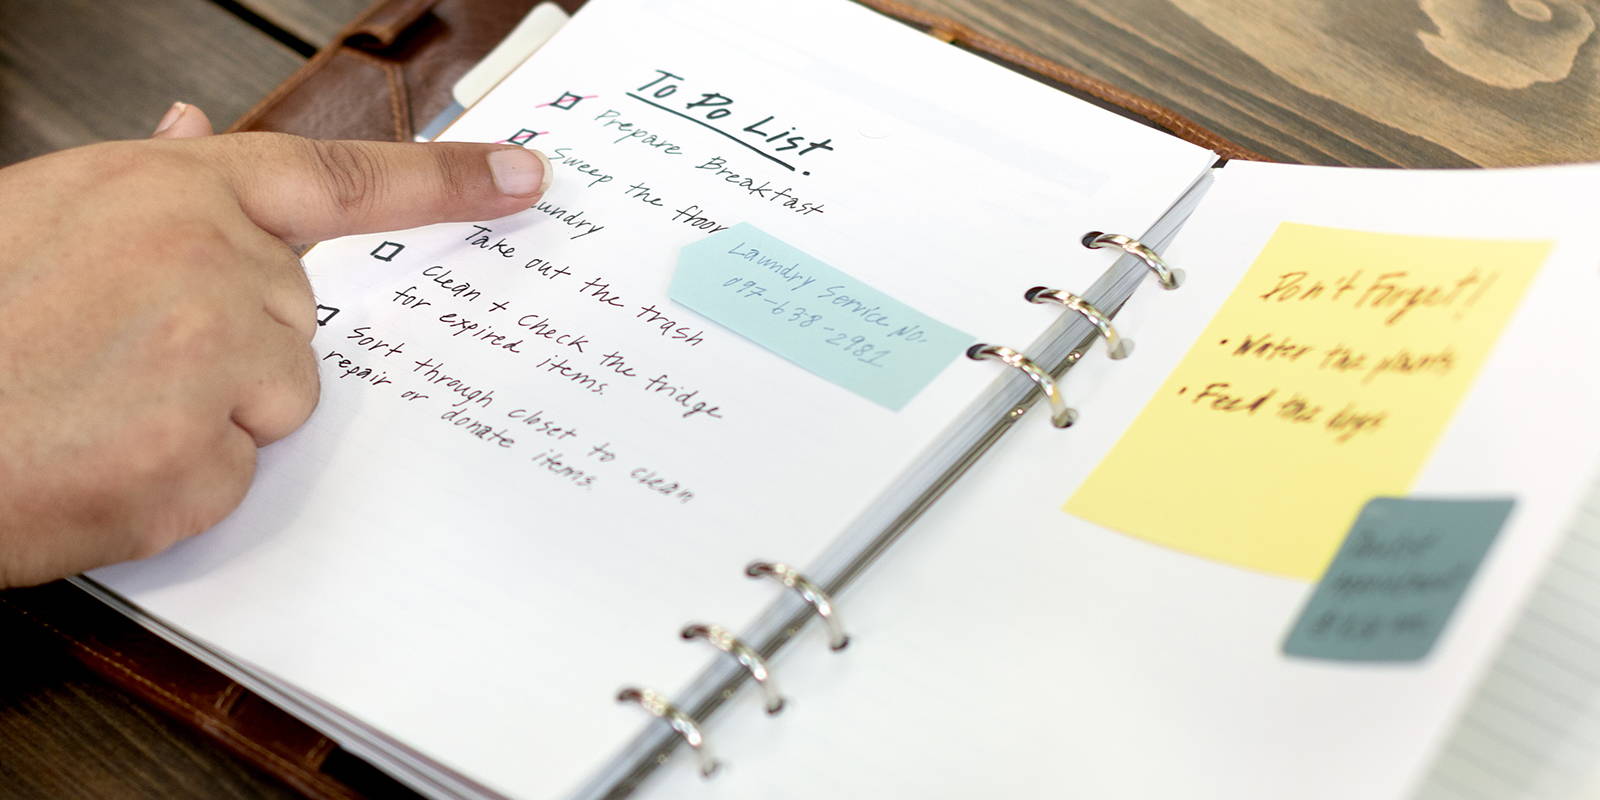 To Do List.
Prepare Breakfast
Sweep the floor
aundry
Take out the trash
Clean + Check the fridge
for expired items.
Sort through closet to clean
repair or donate items.
Laundry Service No.
097-638-2981
Don't Forget!
• Water the plants
• Feed the dogs